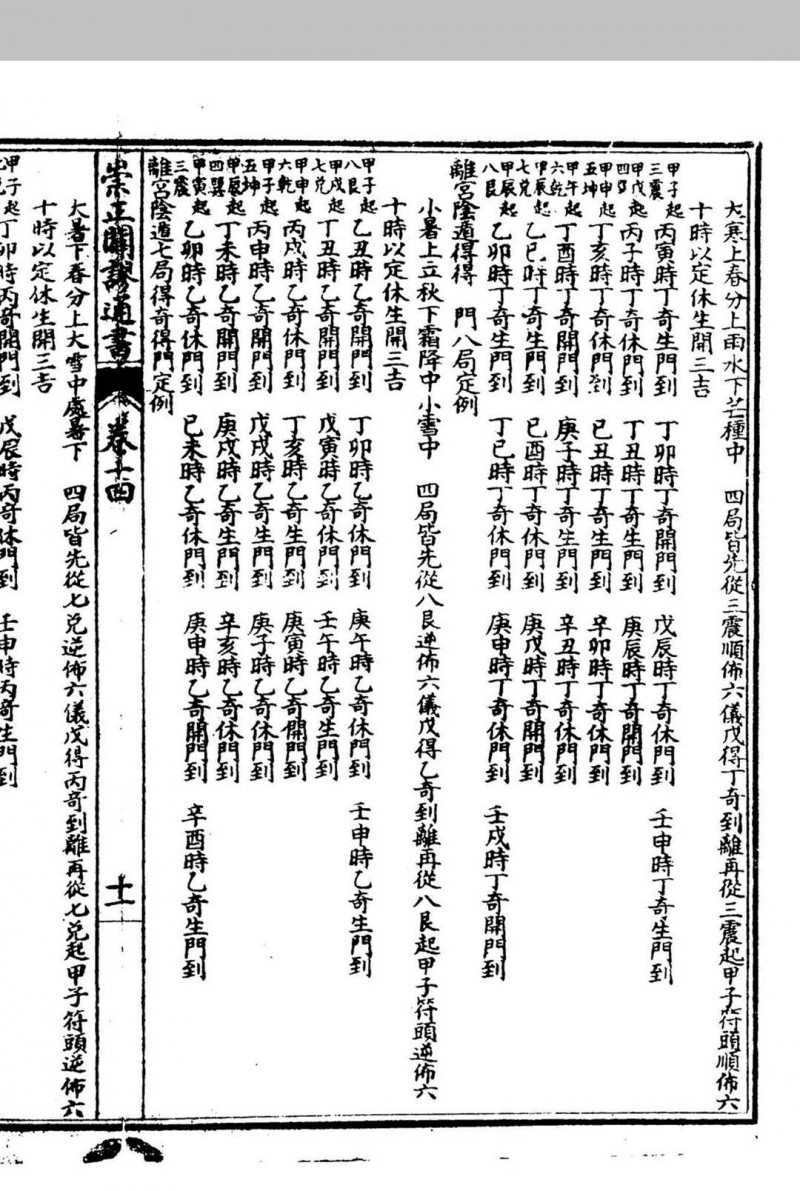 大寒上春分上雨水下芒種中　四局皆先從三震順佈六儀戊得丁奇到離再從三震起甲子符頭順佈六
十時以定休生開三吉
甲子起三震　丙寅時丁奇生門到　丁卯時丁奇開門到　戊辰時丁奇休門到　壬申時丁奇生門到
甲戌起四巽　丙子時丁奇休門到　丁丑時丁奇生門到　庚辰時丁奇開門到
甲申起五坤　丁亥時丁奇休門到　己丑時丁奇生門到　辛卯時丁奇休門到
甲午起六乾　丁酉時丁奇開門到　庚子時丁奇生門到　辛丑時丁奇休門到
甲辰起七兌　乙巳時丁奇生門到　己酉時丁奇休門到　庚戌時丁奇開門到
甲辰起八艮　乙卯時丁奇生門到　丁巳時丁奇休門到　庚申時丁奇休門到　壬戌時丁奇開門到
離宮陰遁得得　門八局定例
小暑上立秋下霜降中小雪中　四局皆先從八艮逆佈六儀戊得乙奇到離再從八艮起甲子符頭逆佈六
十時以定休生開三吉
甲子起八艮　乙丑時乙奇生門到　丁卯時乙奇休門到　庚午時乙奇休門到　壬申時乙奇生門到
甲戌起七兌　丁丑時乙奇開門到　戊寅時乙奇休門到　壬午時乙奇生門到
甲申起六乾　丙戌時乙奇休門到　丁亥時乙奇生門到　庚寅時乙奇開門到
甲子起五坤　丙申時乙奇開門到　戊戌時乙奇生門到　庚子時乙奇休門到
甲辰起四巽　丁未時乙奇開門到　庚戌時乙奇生門到　辛亥時乙奇休門到
甲寅起三震　乙卯時乙奇休門到　己未時乙奇休門到　庚申時乙奇開門到　辛酉時乙奇生門到
離宮陰遁七局得奇得門定例
崇正闢謬通書　卷十四　十一
大暑下春分上大雪中處暑下　四局皆先從七兌逆佈六儀戊得丙奇到離再從七兌起甲子符頭逆佈六
十時以定休生開三吉
甲子起七兌　丁卯時丙奇開門到　戊辰時丙奇休門到　壬申時丙奇生門到